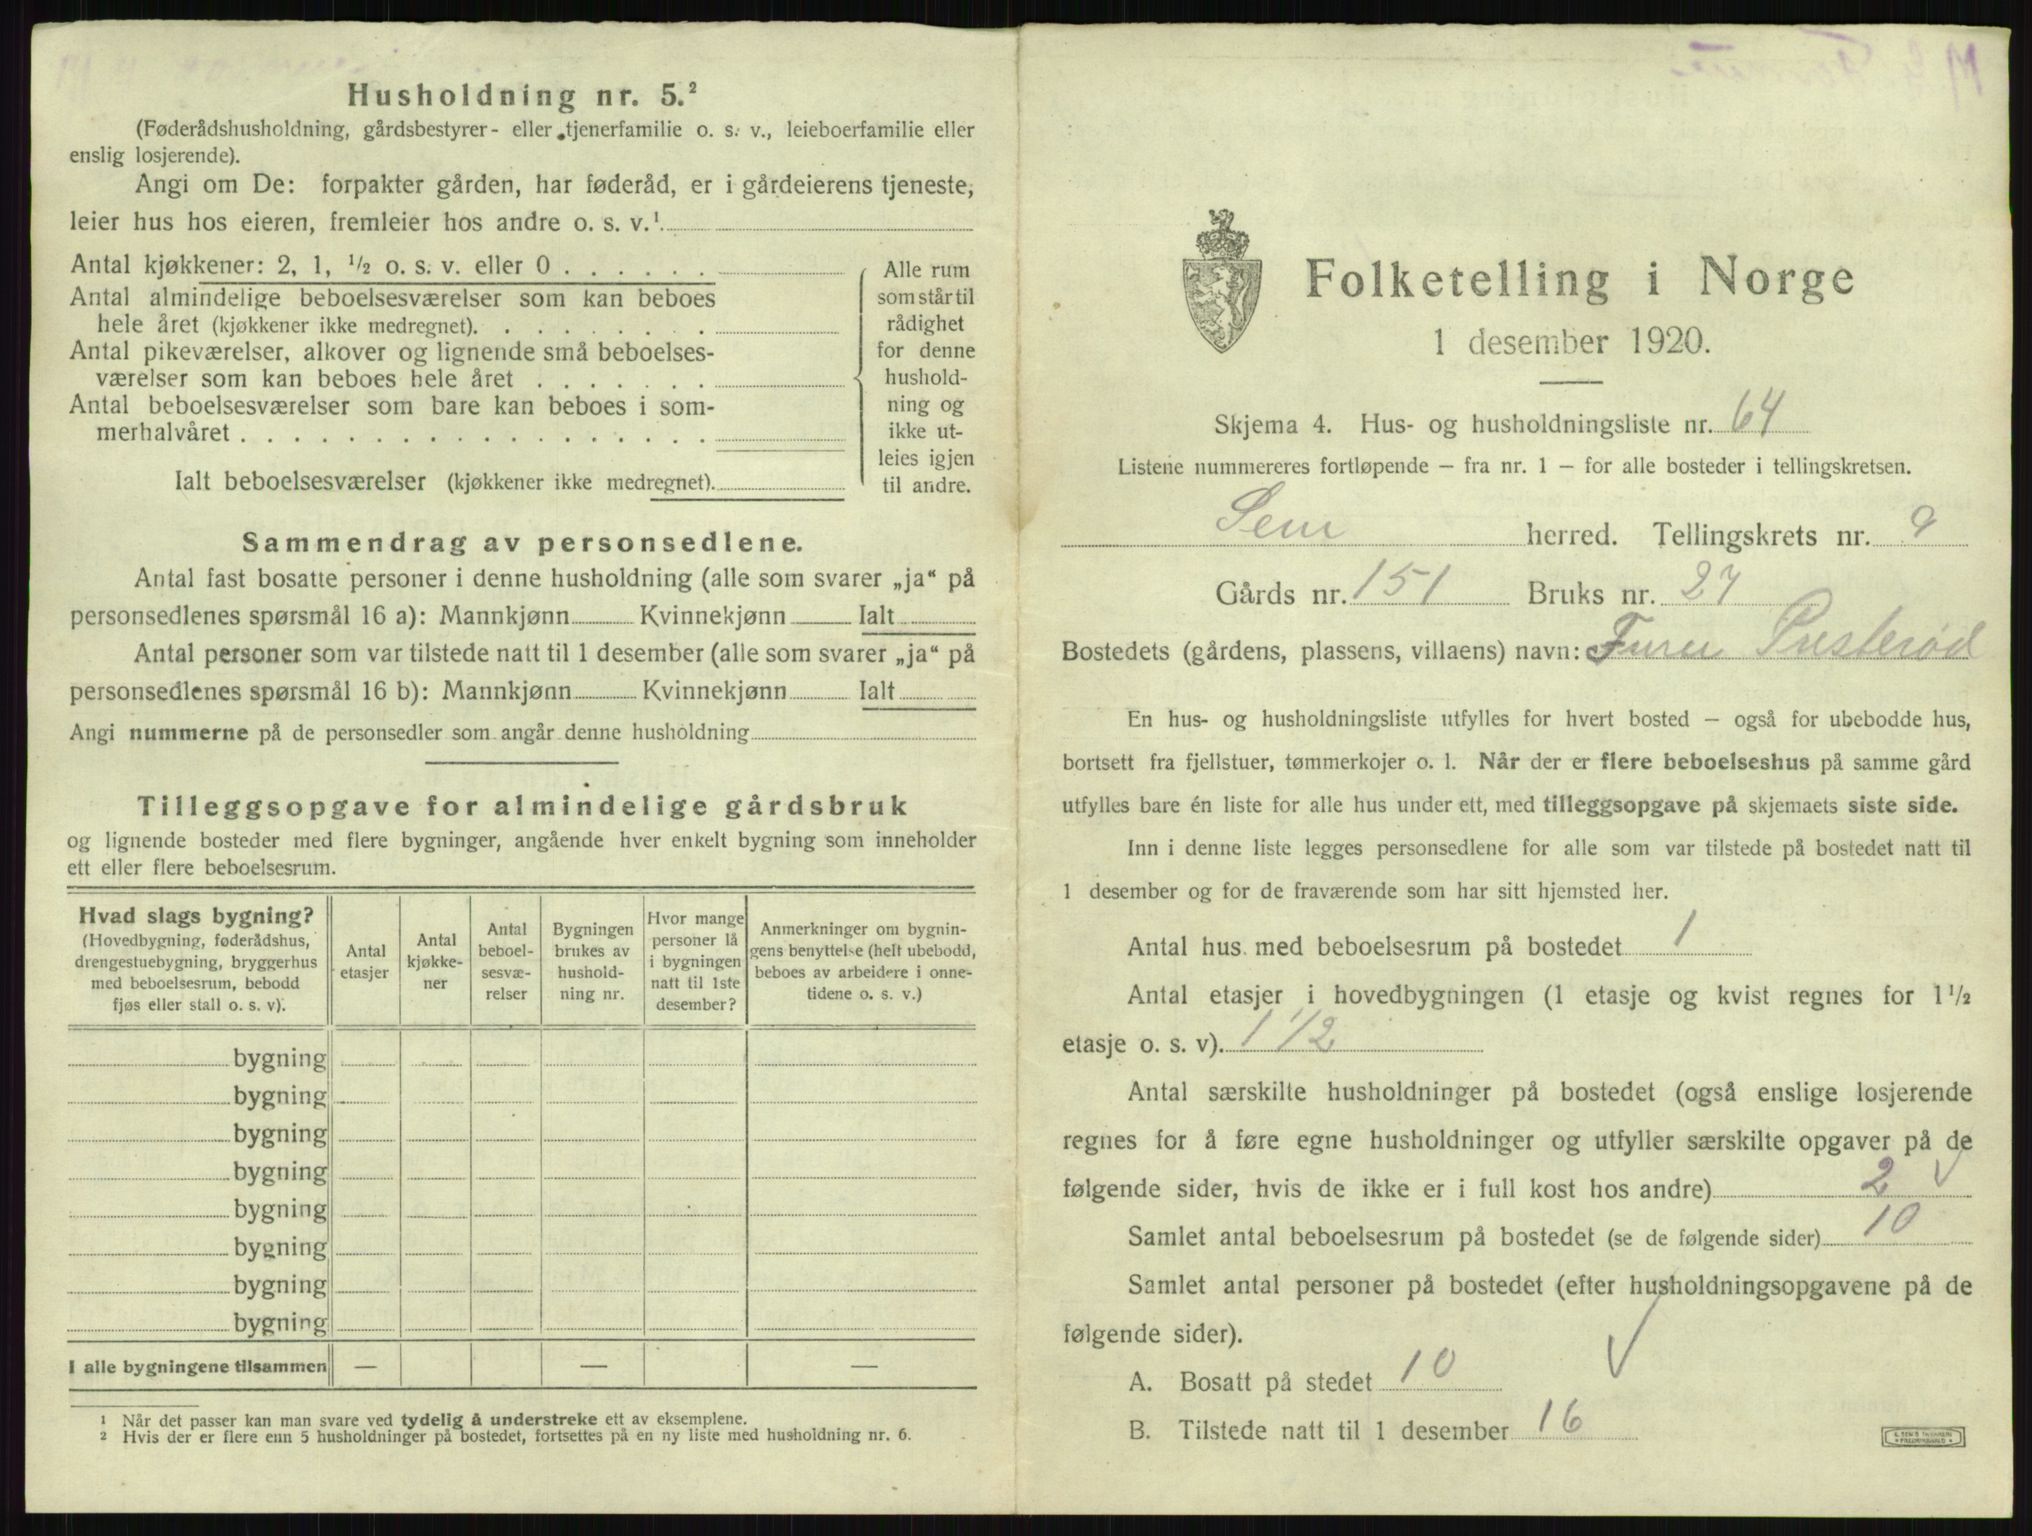 Husholdning nr. 5.²
(Føderådshusholdning, gårdsbestyrer- eller tjenerfamilie o. s. v., leieboerfamilie eller
enslig losjerende).
Angi om De: forpakter gården, har føderåd, er i gårdeierens tjeneste,
leier hus hos eieren, fremleier hos andre o. s. v.¹
Antal kjøkkener: 2, 1, ½ o. s. v. eller 0 . . . . . .
Antal almindelige beboelsesværelser som kan beboes
hele året (kjøkkener ikke medregnet). . . . . . . . .
Antal pikeværelser, alkover og lignende små beboelses-
værelser som kan beboes hele året . . . . . . .
Antal beboelsesværelser som bare kan beboes i som-
merhalvåret . . . . . . . . . . . . . . . . . .
Ialt beboelsesværelser (kjøkkener ikke medregnet).
Alle rum
som står til
rådighet
for denne
hushold-
ning og
ikke ut-
leies igjen
til andre.
Sammendrag av personsedlene.
Antal fast bosatte personer i denne husholdning (alle som svarer „ja“ på
personsedlenes spørsmål 16 a): Mannkjønn Kvinnekjønn Ialt
Antal personer som var tilstede natt til 1 desember (alle som svarer „ja“ på
personsedlenes spørsmål 16 b): Mannkjønn Kvinnekjønn Ialt
Angi nummerne på de personsedler som angår denne husholdning
Tilleggsopgave for almindelige gårdsbruk
og lignende bosteder med flere bygninger, angående hver enkelt bygning som inneholder
ett eller flere beboelsesrum.
Hvad slags bygning?
(Hovedbygning, føderådshus,
drengestuebygning, bryggerhus
med beboelsesrum, bebodd
fjøs eller stall o. s. v).
Antal
etasjer
Antal
kjøkke-
ner
Antal
beboel-
sesvæ-
relser
Bygningen
brukes av
hushold-
ning nr.
Hvor mange
personer lå
i bygningen
natt til 1ste
desember?
Anmerkninger om bygnin-
gens benyttelse (helt ubebodd,
beboes av arbeidere i onne-
tidene o. s. v.)
bygning
bygning
bygning
bygning
bygning
bygning
bygning
bygning
I alle bygningene tilsammen — — —
¹ Når det passer kan man svare ved tydelig å understreke ett av eksemplene.
² Hvis der er flere enn 5 husholdninger på bostedet, fortsettes på en ny liste med husholdning nr. 6.
Folketelling i Norge
1 desember 1920.
Skjema 4. Hus- og husholdningsliste nr. 64
Listene nummereres fortløpende — fra nr. 1 — for alle bosteder i tellingskretsen.
Sem herred. Tellingskrets nr. 9
Gårds nr. 151 Bruks nr. 27
Bostedets (gårdens, plassens, villaens) navn: Furu Presterød
En hus- og husholdningsliste utfylles for hvert bosted — også for ubebodde hus,
bortsett fra fjellstuer, tømmerkojer o. l. Når der er flere beboelseshus på samme gård
utfylles bare én liste for alle hus under ett, med tilleggsopgave på skjemaets siste side.
Inn i denne liste legges personsedlene for alle som var tilstede på bostedet natt til
1 desember og for de fraværende som har sitt hjemsted her.
Antal hus med beboelsesrum på bostedet 1
Antal etasjer i hovedbygningen (1 etasje og kvist regnes for 1½
etasje o. s. v). 1 1/2
Antal særskilte husholdninger på bostedet (også enslige losjerende
regnes for å føre egne husholdninger og utfyller særskilte opgaver på de
følgende sider, hvis de ikke er i full kost hos andre) 2 ✓
Samlet antal beboelsesrum på bostedet (se de følgende sider) 10
Samlet antal personer på bostedet (efter husholdningsopgavene på de
følgende sider). ✓
A. Bosatt på stedet 10
B. Tilstede natt til 1 desember 16